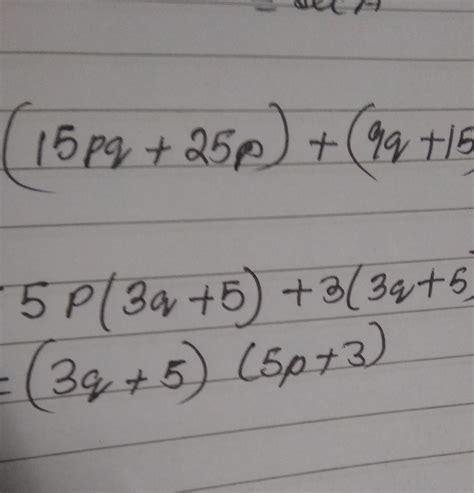 = sec A
(15pq + 25p) + (9q + 15
5P(3q + 5) + 3(3q + 5
= (3q + 5) (5p + 3)